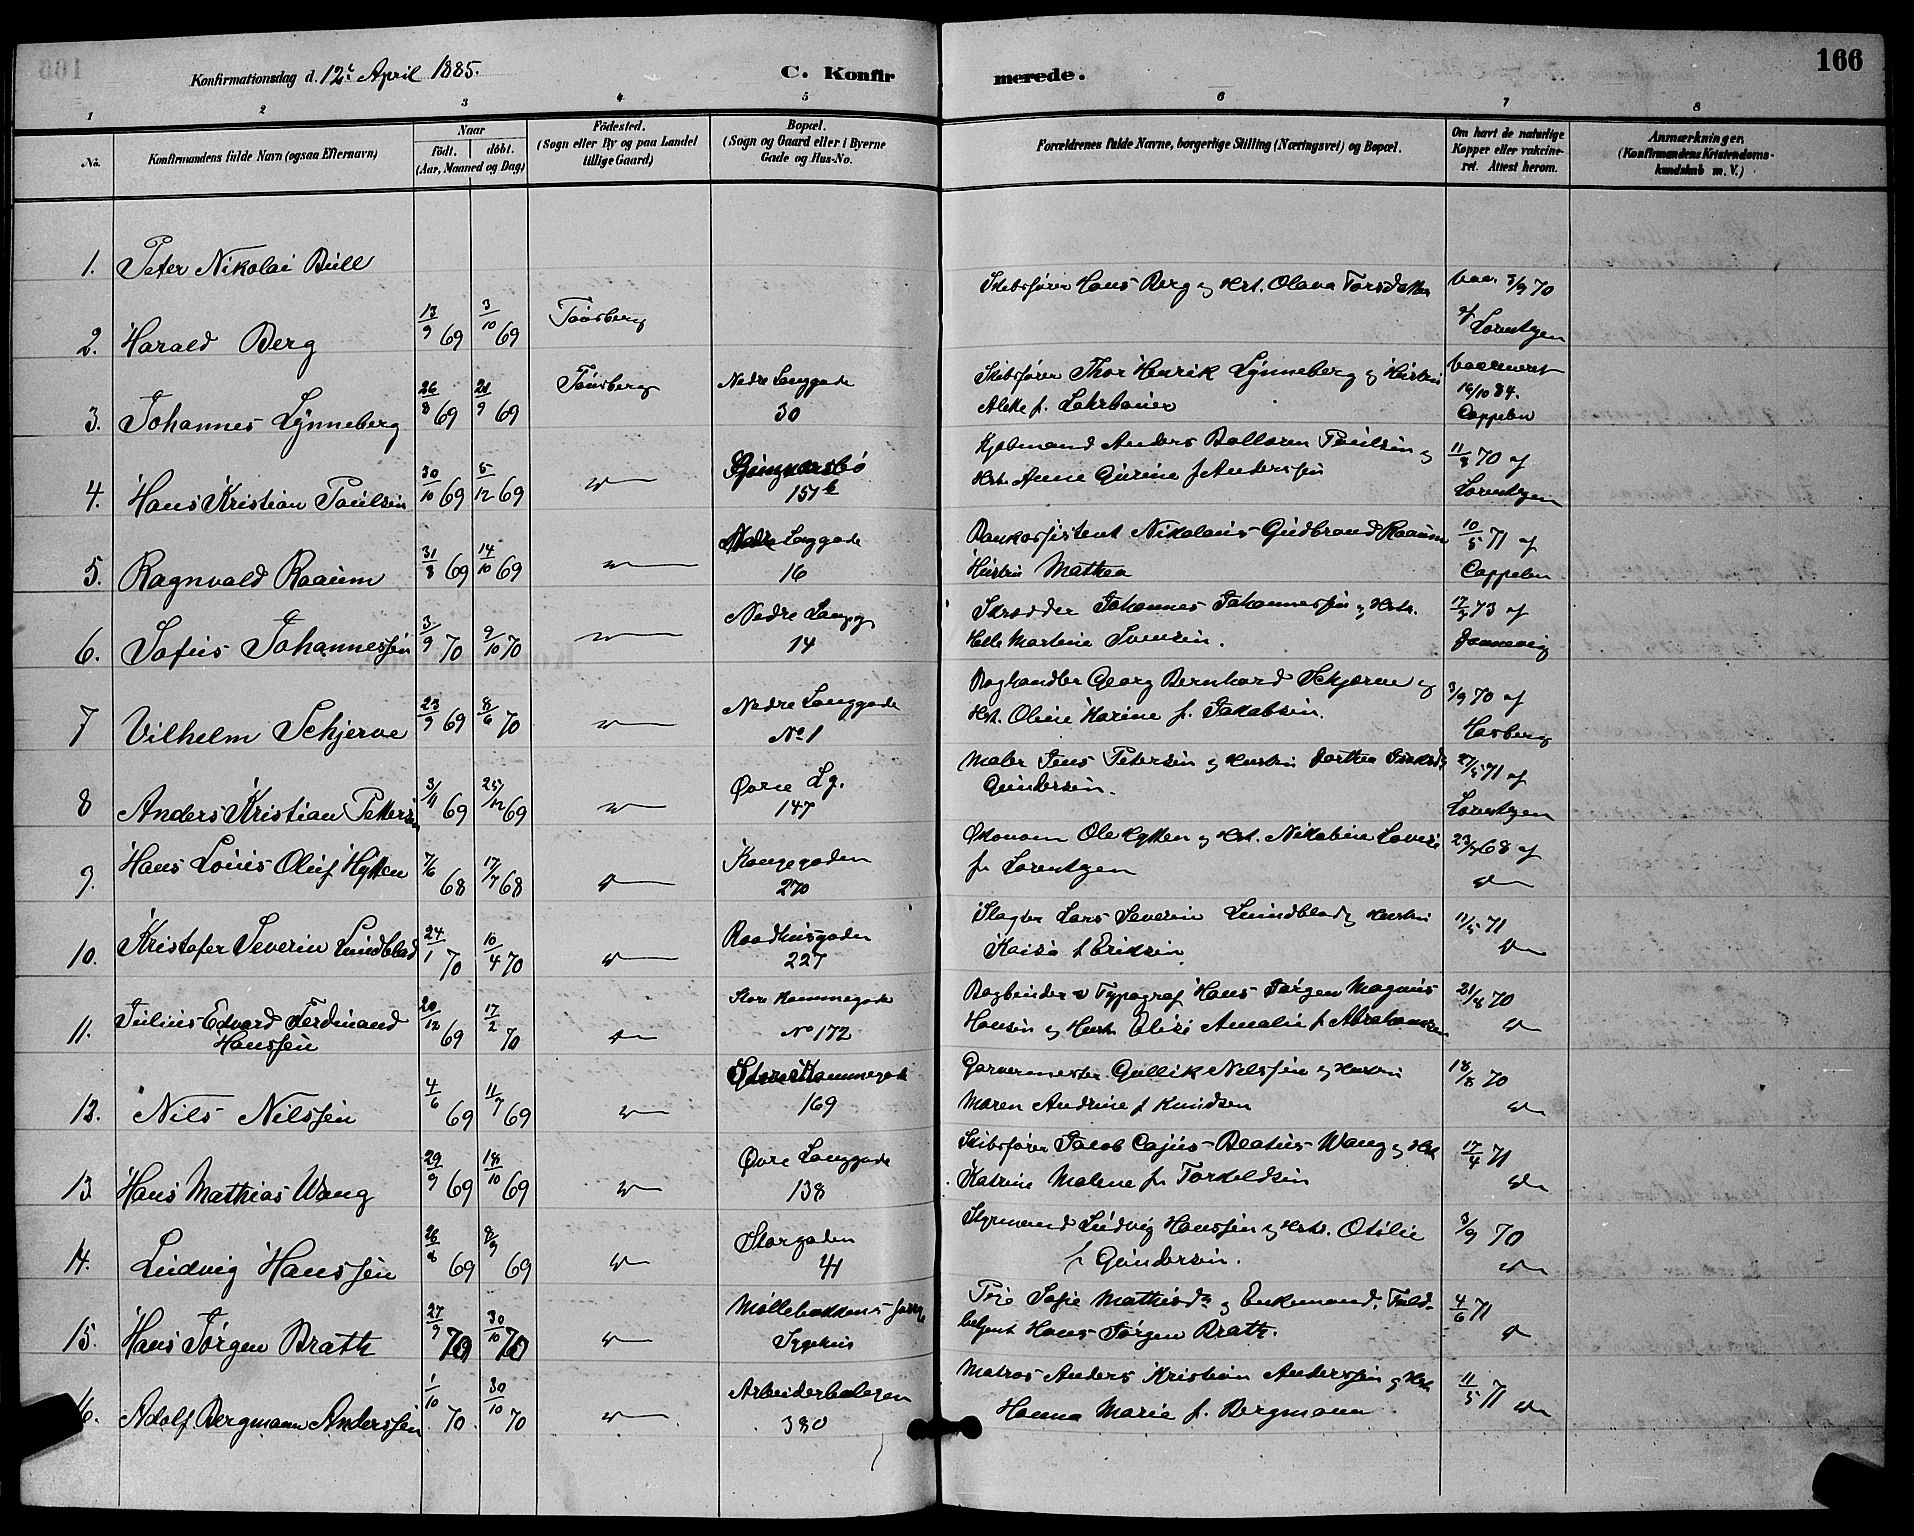 166
Konfirmationsdag d. 12te April 1885.
C. Konfirmerede.
1 2 3 4 5 6 7 8
No.
Konfirmandens fulde Navn (ogsaa Efternavn)
Naar
födt. döbt.
(Aar, Maaned og Dag)
Födested.
(Sogn eller By og paa Landet
tillige Gaard)
Bopæl.
(Sogn og Gaard eller i Byerne
Gade og Hus-No.
Forældrenes fulde Navne, borgerlige Stilling (Næringsvei) og Bopæl.
Om havt de naturlige
Kopper eller vakcine-
ret. Attest herom.
Anmærkninger.
(Konfirmandens Kristendoms-
kundskab m. V.)
1. Peter Nikolai Bull
2. Harald Berg 13/9 69 3/10 69 Tönsberg
Skibsfører Hans Berg og Hst. Olava Torsdatter
vacc. 3/9 70
af Lorentzen
3. Johannes Lynneberg 26/8 69 21/9 69 Tönsberg
Nedre Langgade
30
Skibsfører Thor Henrik Lynneberg og Hustru
Alette f. Lahrbauer
vaccineret
16/10 84.
Cappelen
4. Hans Kristian Paulsen 30/10 69 5/12 69
157b
Kjøbmand Anders Paulsen og
Hst. Anne Gurine f. Anderssen
11/8 70 af
Lorentzen
5. Ragnvald Raaum 31/8 69 14/10 69
Nedre Langgade
16
Bankassistent Nikolaus Gudbrand Raaum
Hustru Mathea
10/5 71 af
Cappelen
6. Sofus Johannessen 3/9 70 9/10 70
Nedre Langg
14
Skrædder Johannes Johannessen og Hstr.
Helle Martine Svensen.
73 af
7 Vilhelm Schjerve 23/9 69 8/6 70
Nedre Langgade
No 1
Boghandler Georg Bernhard Schjerve og
Hst. Oline Karine f. Jakobsen.
3/9 70 af
Hasberg
8 Anders Kristian Pettersen 3/11 69 25/12 69
Øvre Lg.
147
Maler Jens Petersen og Hustru Dorthea
Gundersen.
27/5 71 af
Lorentzen
9. Hans Louis Oluf Hytten 7/6 68 17/7 68
Kongegaden
270
Økonom Ole Hytten og Hst. Nikoline Lovise
f. Lorentzen
68 af
10. Kristofer Severin Lundblad 24/1 70 10/4 70
Raadhusgaden
227
Slagter Lars Severin Lundblad og Hustru
Kaisa f Eriksen
11/5 71
11. Julius Edvard Ferdinand
Hanssen
20/12 69 17/2 70
Store Kammegade
No 172
Bogbinder & Typograf Hans Jørgen Magnus
Hansen og Hust. Elise Amalie f Abrahamsen
21/8 70
12. Nils Nilssen 4/6 69 11/7 69
Store Kammegade
169
Garvermester Gullik Nilssen og Hustru
Maren Andrine f Knudsen
18/8 70
13. Hans Mathias Wang 29/9 69 18/10 69
Øvre Langgade
138
Skibsfører Jacob Cajus Beatus Wang og Hst
Katrine Malene f. Torkeldsen
17/4 71
14. Ludvig Hanssen 26/8 69 8/9 69
Storgaden
41
Styrmand Ludvig Hanssen og Hstr. Otilie
f Gundersen.
3/9 70
15. Hans Jørgen Brath 27/9 70 30/10 70
Sygehus
Pige Sofie Mathisdr og Enkemand,
Hans Jørgen Brath.
4/6 71
16. Adolf Bergmann Anderssen 1/10 70 30/10 70
Arbeiderboligen
380
Matros Anders Kristian Anderssen og Hst
Hanna Marie f. Bergmann
11/5 71